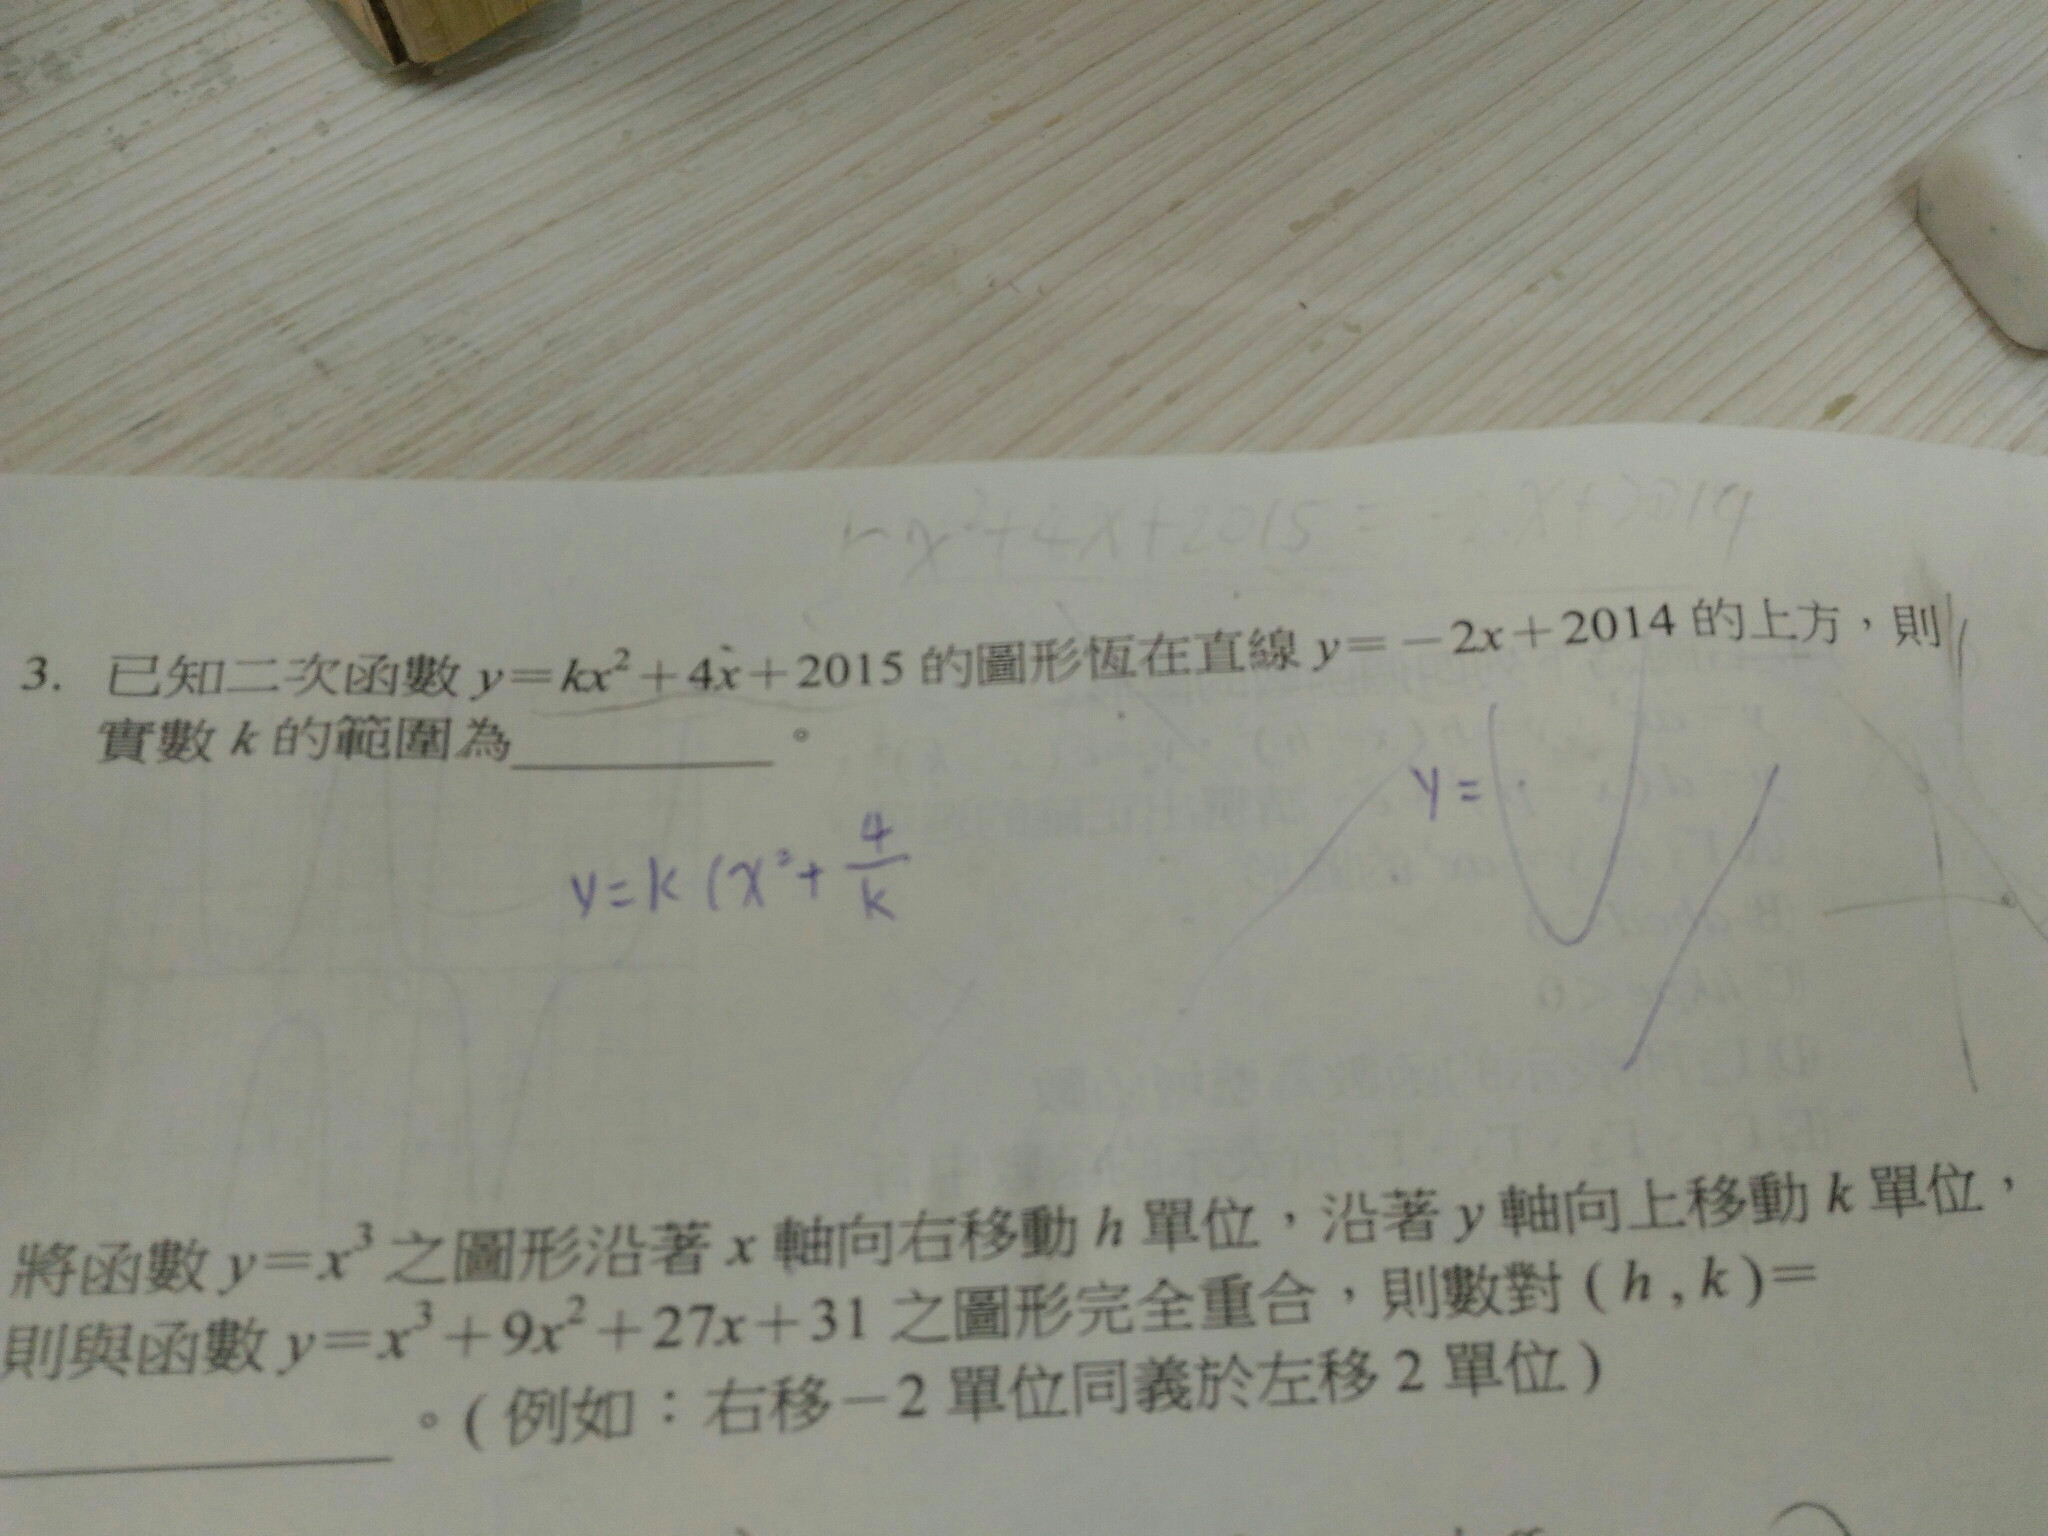 x²+4x+2015 = -2x+2014
3. 已知二次函數 y=kx²+4x+2015 的圖形恆在直線 y=-2x+2014 的上方，則
實數 k 的範圍為＿＿＿＿。
y=
y=k(x²+4/k
將函數 y=x³ 之圖形沿著 x 軸向右移動 h 單位，沿著 y 軸向上移動 k 單位，
則與函數 y=x³+9x²+27x+31 之圖形完全重合，則數對 ( h , k )=
＿＿＿＿。( 例如：右移-2 單位同義於左移 2 單位 )